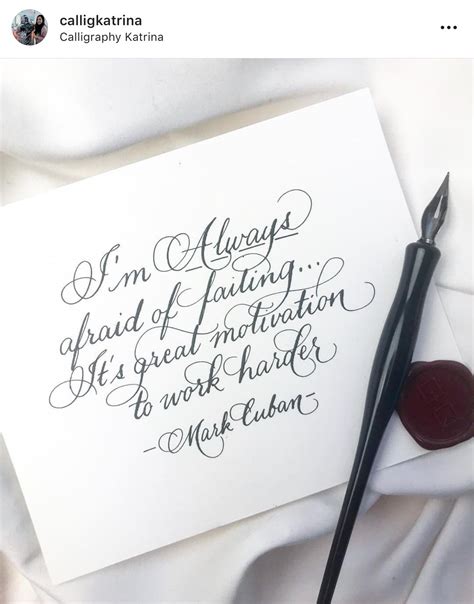 calligkatrina
Calligraphy Katrina
I'm Always
afraid of failing...
It's great motivation
to work harder
-Mark Cuban-